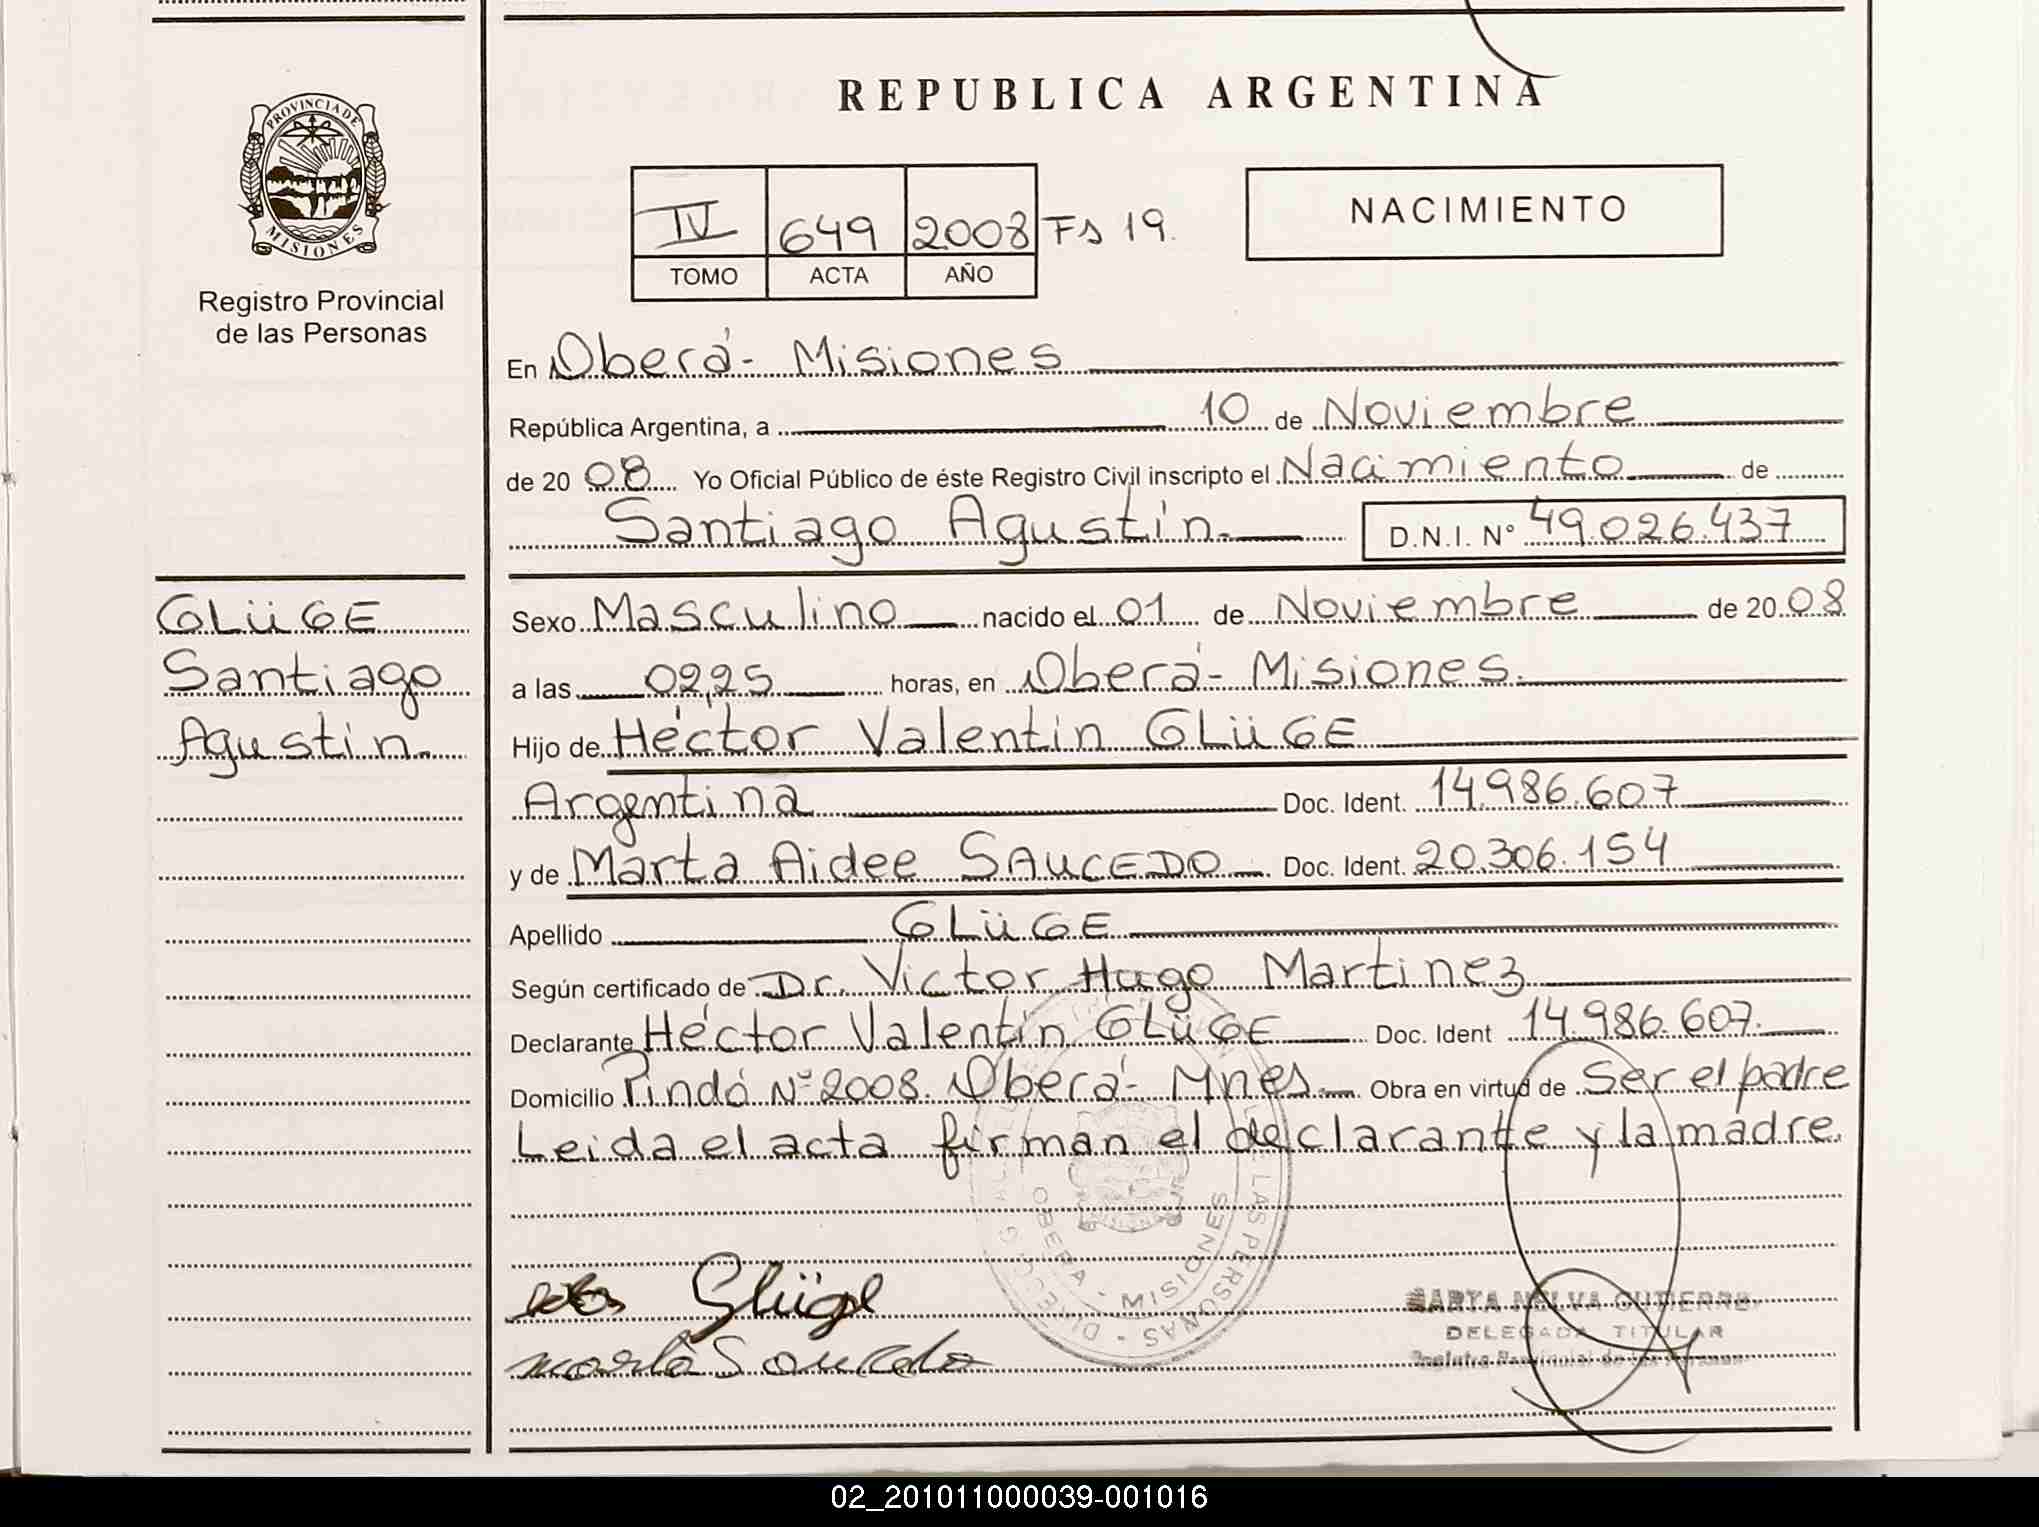 REPUBLICA ARGENTINA
PROVINCIA DE
MISIONES
Registro Provincial
de las Personas
IV 649 2008 Fs 19.
TOMO ACTA AÑO
NACIMIENTO
En Oberá- Misiones
República Argentina, a 10 de Noviembre
de 20 08 Yo Oficial Público de éste Registro Civil inscripto el Nacimiento de
Santiago Agustín. D.N.I. N° 49.026.437
GLÜGE
Santiago
Agustín.
Sexo Masculino nacido el 01 de Noviembre de 20 08
a las 02,25 horas, en Oberá- Misiones.
Hijo de Héctor Valentín GLÜGE
Argentina Doc. Ident. 14.986.607
y de Marta Aidee SAUCEDO. Doc. Ident. 20.306.154
Apellido GLÜGE
Según certificado de Dr. Victor Hugo Martinez
Declarante Héctor Valentín GLÜGE Doc. Ident 14.986.607.
Domicilio Pindó Nº 2008. Oberá- Mnes. Obra en virtud de Ser el padre
Leida el acta firman el declarante y la madre.
Glüge
Marta Saucedo
OBERA - MISIONES
DE LAS PERSONAS
MARTA NELVA GUTIERREZ
DELEGADA TITULAR
Registro Provincial de las Personas
02_201011000039-001016